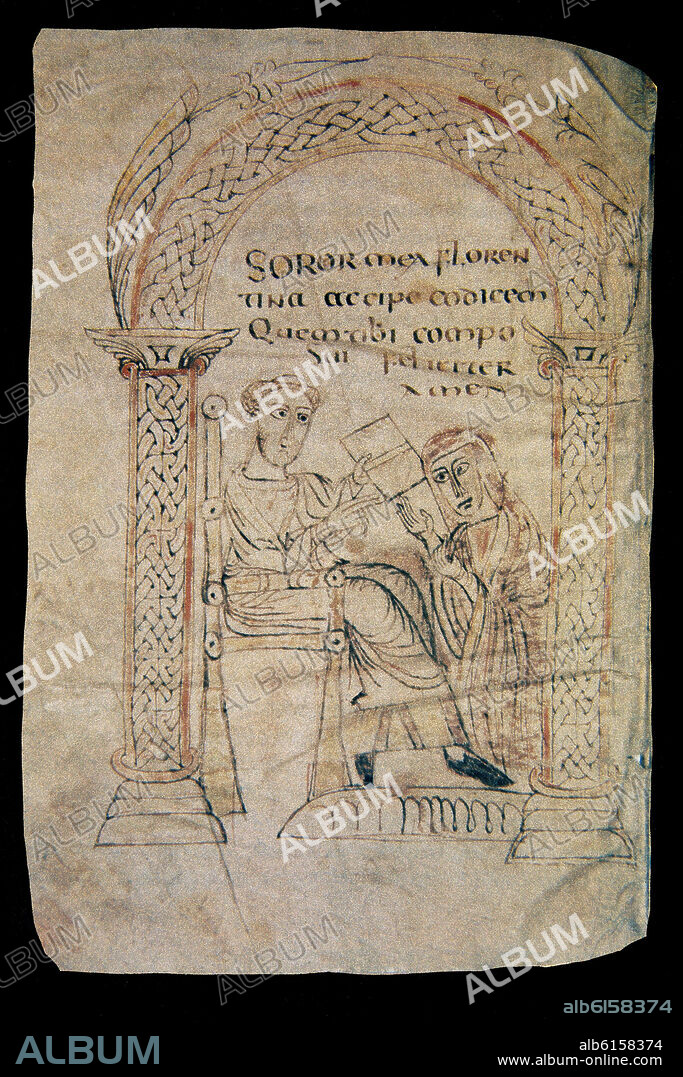 SOROR mea FLOREN
TINA accipe codicem
Quem tibi compo
sui feliciter
amen
ALBUM
alb6158374
ALBUM
alb6158374
www.album-online.com